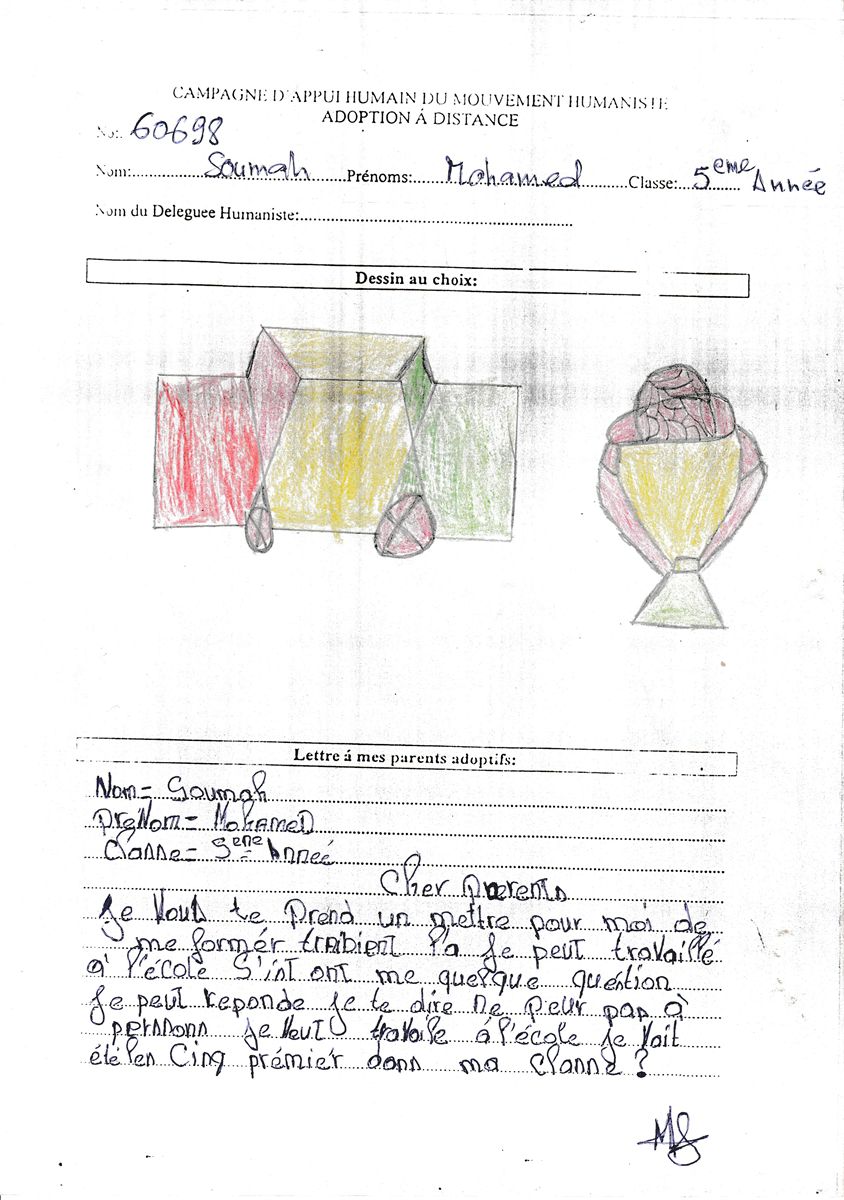 CAMPAGNE D'APPUI HUMAIN DU MOUVEMENT HUMANISTE
ADOPTION Á DISTANCE
No: 60698
Nom: Soumah Prénoms: Mohamed Classe: 5 eme Année
Nom du Deleguee Humaniste:
Dessin au choix:
Lettre á mes parents adoptifs:
Nom= Soumah
PreNom= MohameD
Classe= 5eme Anneé
Cher parents
Je Vous te Prend un mettre pour moi de
me formér trebient là Je peut travaillé
a' l'école S'int ont me quelque question
Je peut reponde Je te dire ne peur pas à
personn Je Veut travaile á l'école Je Vait
été len Cinq prémier dans ma Classe ?
MS